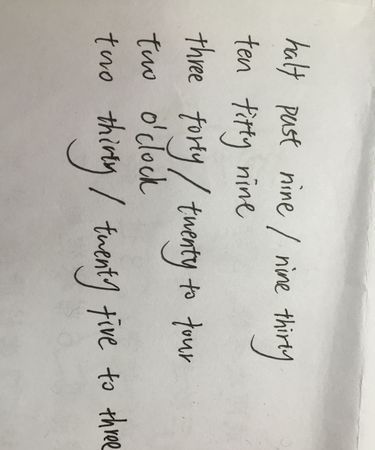 half past nine / nine thirty
ten fifty nine
three forty / twenty to four
two o'clock
two thirty / twenty five to three